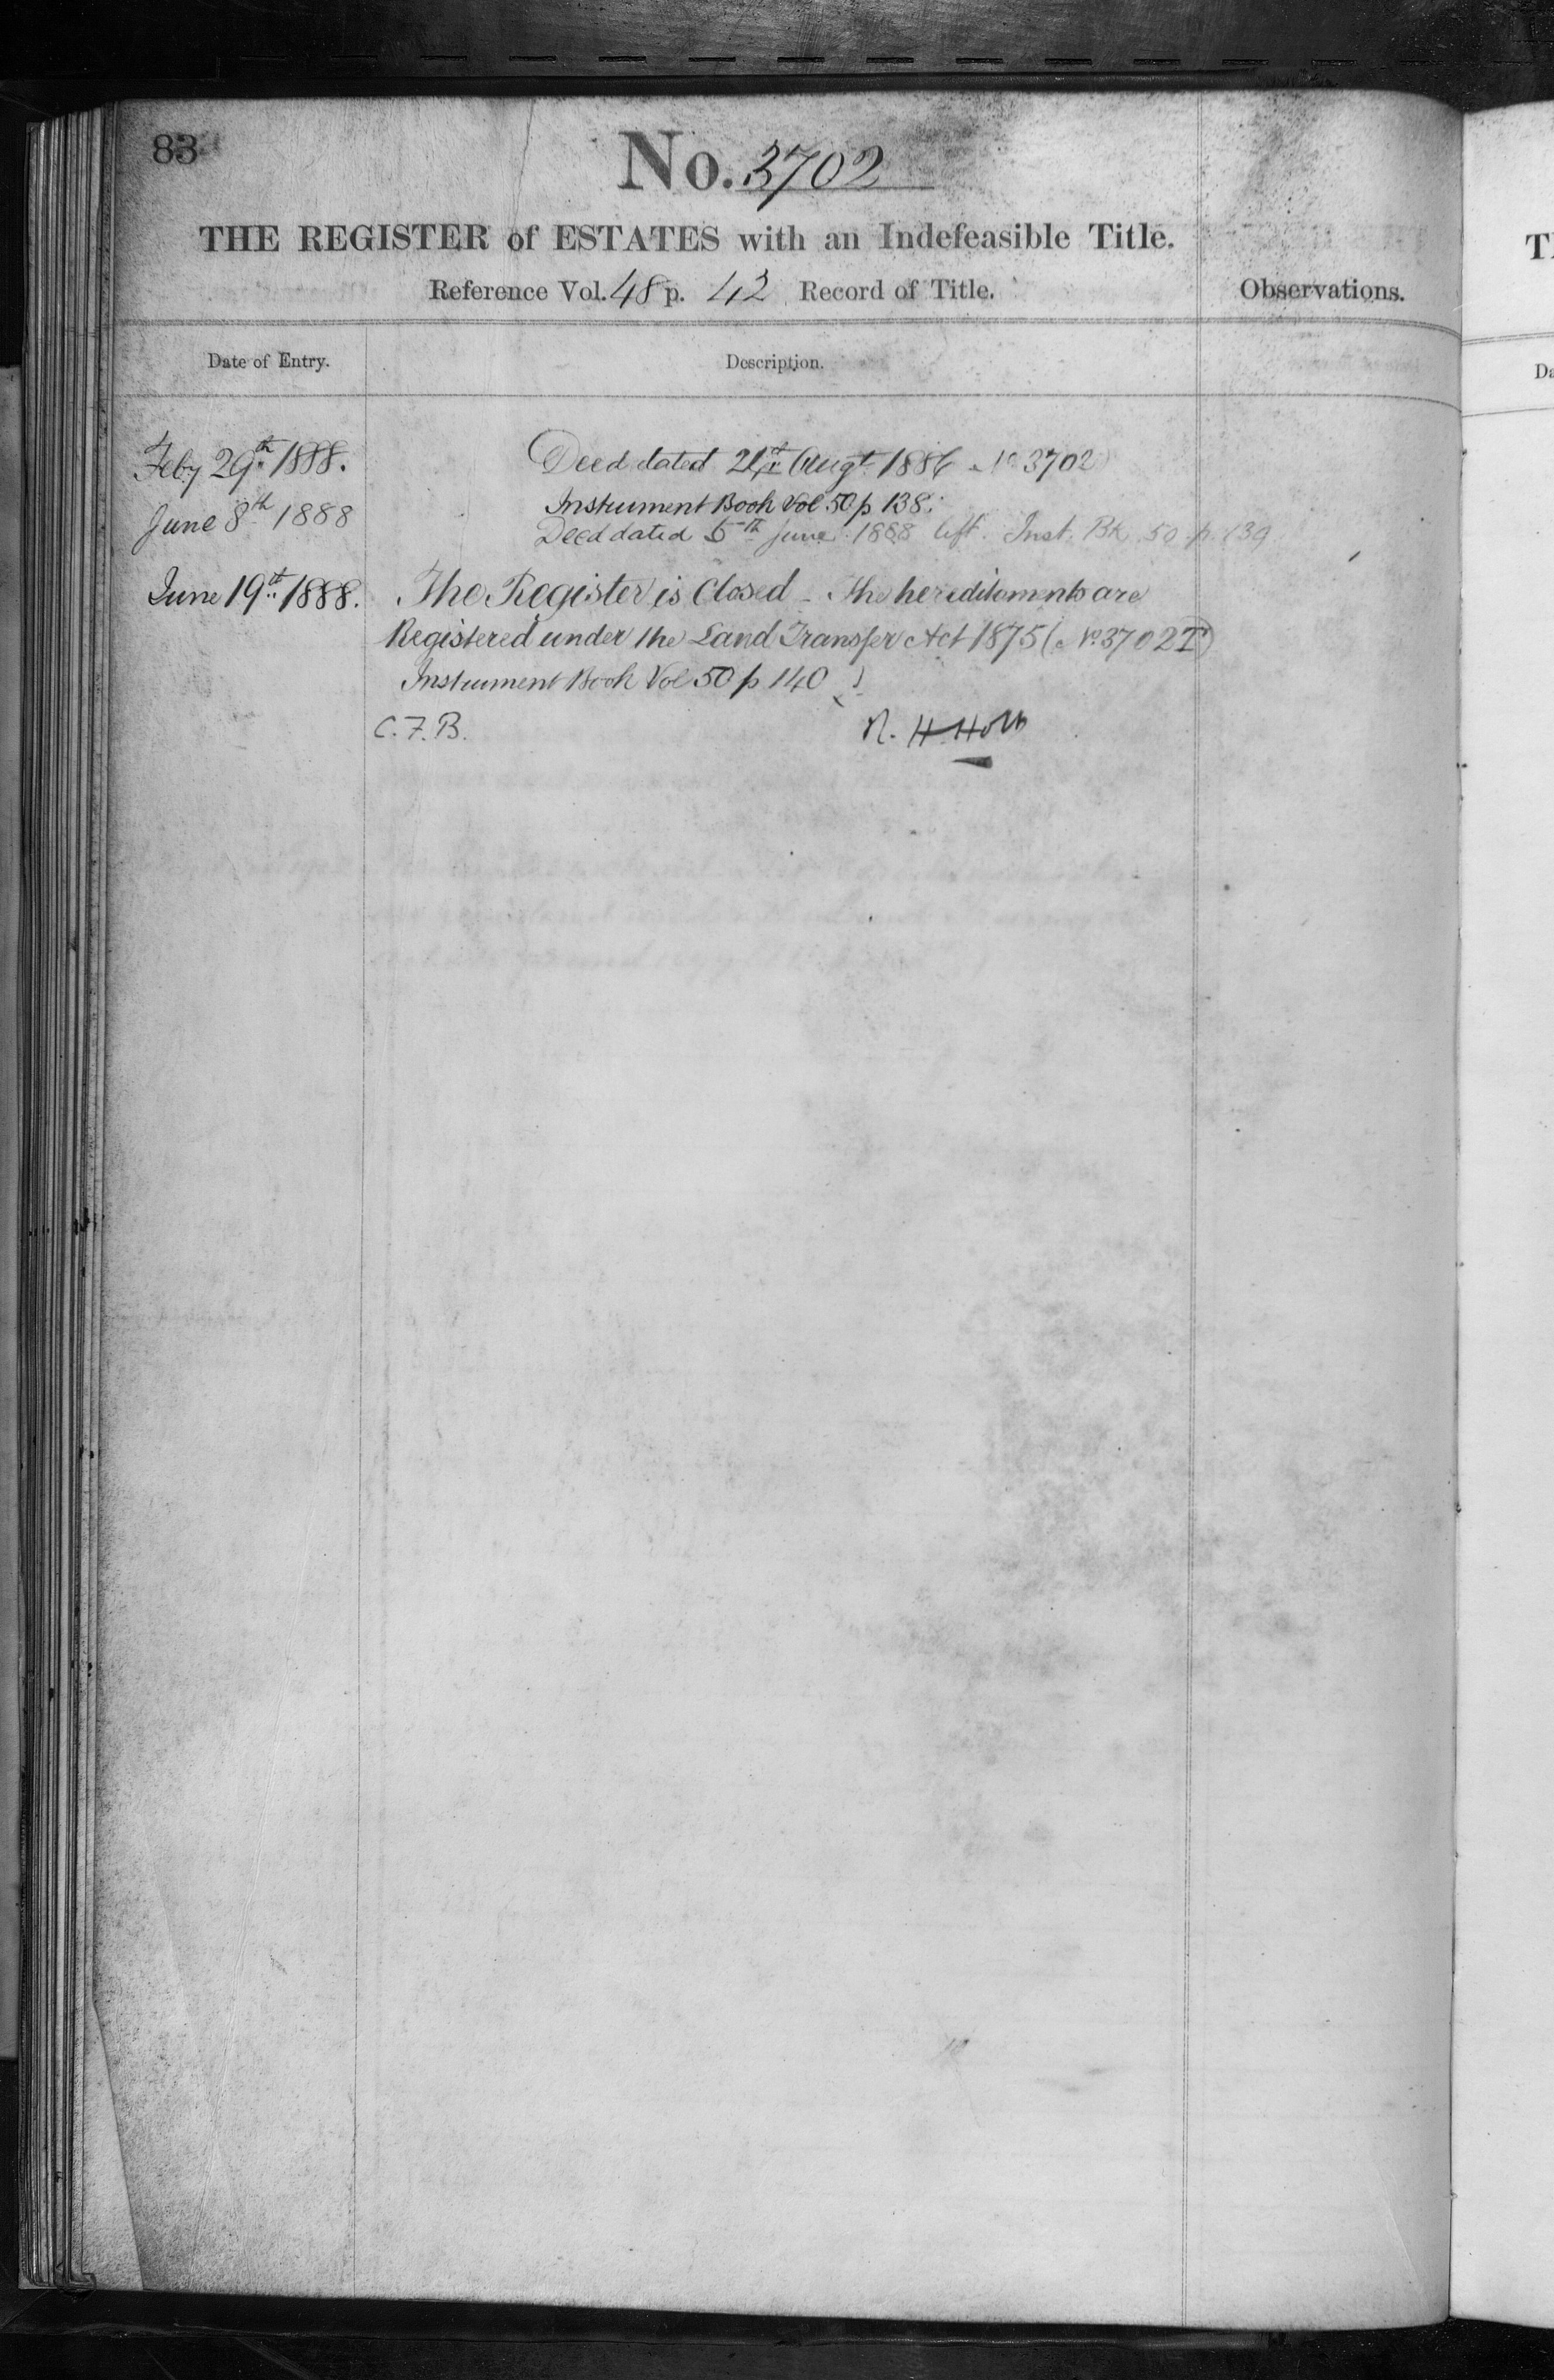 83
No. 3702
THE REGISTER of ESTATES with an Indefeasible Title.
Reference Vol. 48 p. 42 Record of Title.
Observations.
Date of Entry.
Description.
Feby 29th 1888.
Deed dated 21st Augt 1886 No 3702
Instrument Book Vol 50 p 138.
June 8th 1888
Deed dated 5th June 1888 left. Inst. Bk. 50 p. 139
June 19th 1888.
The Register is Closed - The hereditaments are
Registered under the Land Transfer Act 1875 (No 3702 T)
Instrument Book Vol 50 p 140
C.F.B.
R. H. Holt